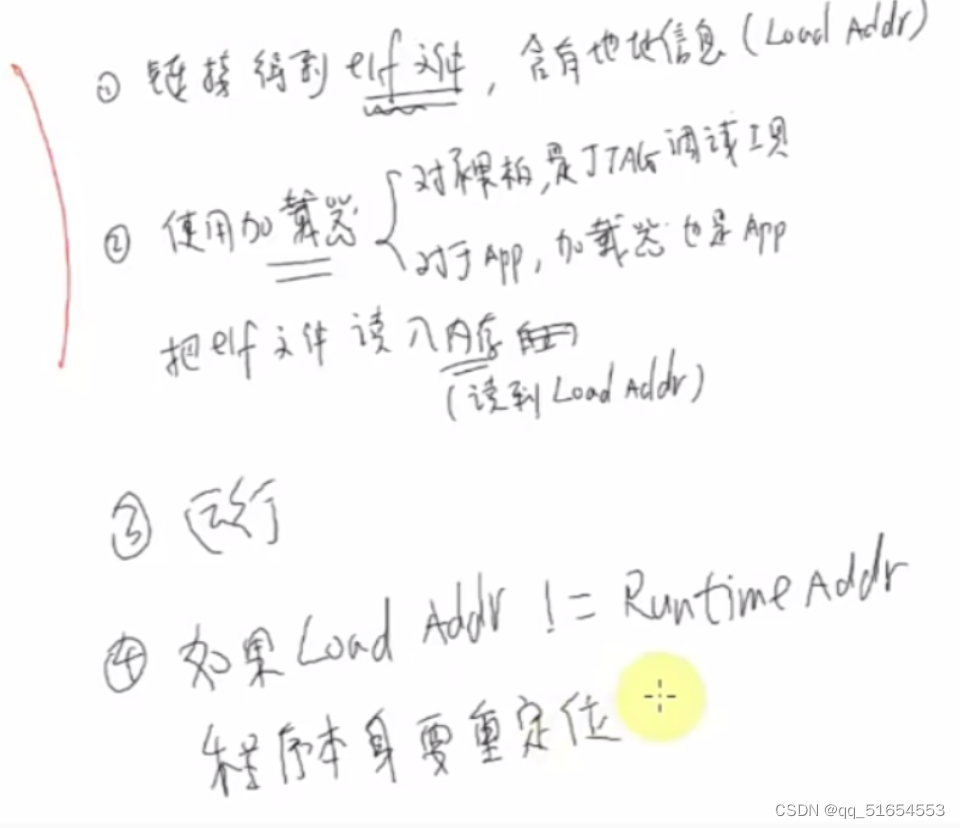 ① 链接得到elf文件,含有地址信息(Load Addr)
② 使用加载器
对裸板,是JTAG调试工具
对于App,加载器也是App
把elf文件读入内存
(读到Load Addr)
③ 运行
④ 如果Load Addr != Runtime Addr
程序本身要重定位
CSDN @qq_51654553